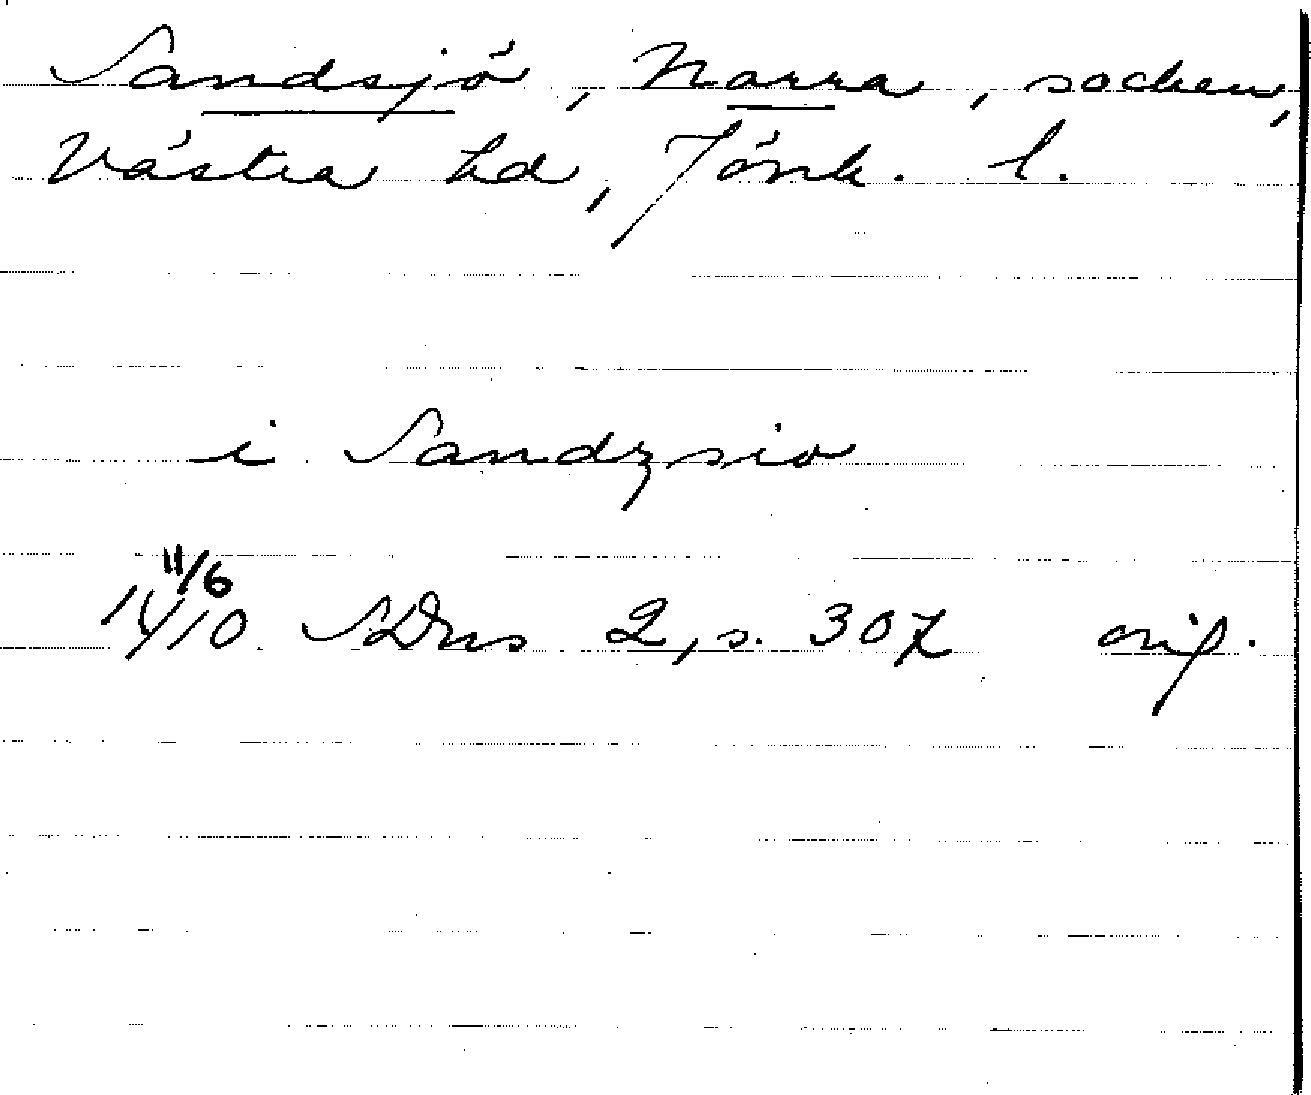 Sandsjö, Norra, socken,
Västra hd, Jönk. l.
i Sandzsio
11/6
1410 SDns 2, s. 307 orig.